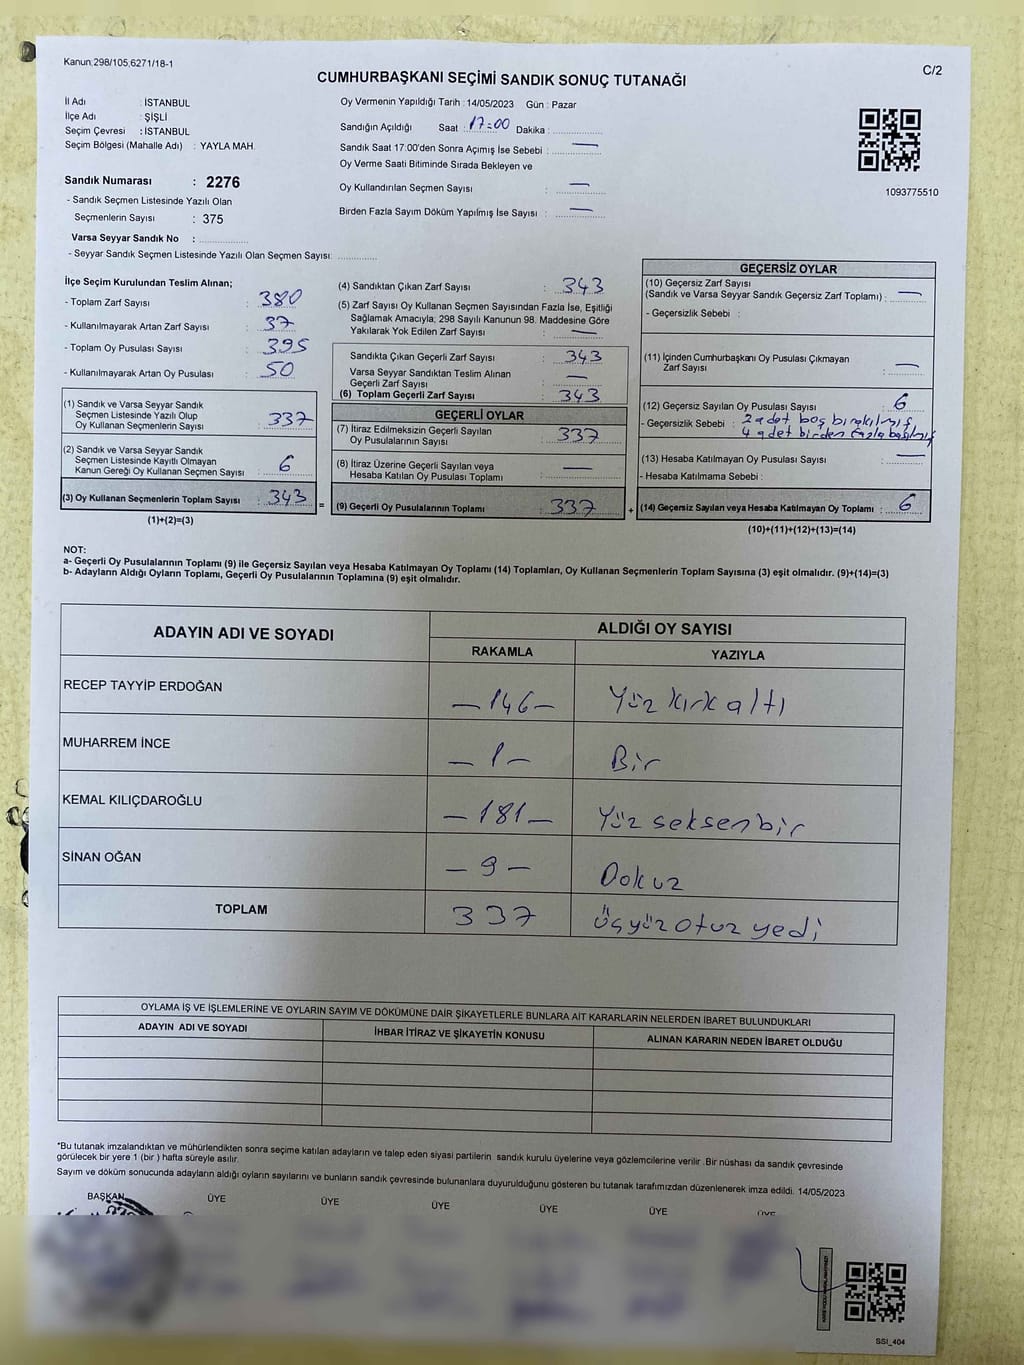 Kanun:298/105;6271/18-1
C/2
CUMHURBAŞKANI SEÇİMİ SANDIK SONUÇ TUTANAĞI
İl Adı : İSTANBUL
İlçe Adı : ŞİŞLİ
Seçim Çevresi : İSTANBUL
Seçim Bölgesi (Mahalle Adı) : YAYLA MAH.
Sandık Numarası : 2276
- Sandık Seçmen Listesinde Yazılı Olan
Seçmenlerin Sayısı : 375
Varsa Seyyar Sandık No :
- Seyyar Sandık Seçmen Listesinde Yazılı Olan Seçmen Sayısı:
Oy Vermenin Yapıldığı Tarih : 14/05/2023 Gün : Pazar
Sandığın Açıldığı Saat : 17:00 Dakika :
Sandık Saat 17:00'den Sonra Açımış İse Sebebi : —
Oy Verme Saati Bitiminde Sırada Bekleyen ve
Oy Kullandırılan Seçmen Sayısı : —
Birden Fazla Sayım Döküm Yapılmış İse Sayısı : —
1093775510
İlçe Seçim Kurulundan Teslim Alınan;
- Toplam Zarf Sayısı : 380
- Kullanılmayarak Artan Zarf Sayısı : 37
- Toplam Oy Pusulası Sayısı : 395
- Kullanılmayarak Artan Oy Pusulası : 50
(1) Sandık ve Varsa Seyyar Sandık
Seçmen Listesinde Yazılı Olup
Oy Kullanan Seçmenlerin Sayısı : 337
(2) Sandık ve Varsa Seyyar Sandık
Seçmen Listesinde Kayıtlı Olmayan
Kanun Gereği Oy Kullanan Seçmen Sayısı : 6
(3) Oy Kullanan Seçmenlerin Toplam Sayısı : 343
(1)+(2)=(3)
(4) Sandıktan Çıkan Zarf Sayısı : 343
(5) Zarf Sayısı Oy Kullanan Seçmen Sayısından Fazla İse, Eşitliği
Sağlamak Amacıyla; 298 Sayılı Kanunun 98. Maddesine Göre
Yakılarak Yok Edilen Zarf Sayısı : —
Sandıkta Çıkan Geçerli Zarf Sayısı : 343
Varsa Seyyar Sandıktan Teslim Alınan
Geçerli Zarf Sayısı : —
(6) Toplam Geçerli Zarf Sayısı : 343
GEÇERLİ OYLAR
(7) İtiraz Edilmeksizin Geçerli Sayılan
Oy Pusulalarının Sayısı : 337
(8) İtiraz Üzerine Geçerli Sayılan veya
Hesaba Katılan Oy Pusulası Toplamı : —
= (9) Geçerli Oy Pusulalarının Toplamı : 337
GEÇERSİZ OYLAR
(10) Geçersiz Zarf Sayısı
(Sandık ve Varsa Seyyar Sandık Geçersiz Zarf Toplamı) : —
- Geçersizlik Sebebi :
(11) İçinden Cumhurbaşkanı Oy Pusulası Çıkmayan
Zarf Sayısı : —
(12) Geçersiz Sayılan Oy Pusulası Sayısı : 6
- Geçersizlik Sebebi : 2 adet boş bırakılmış
4 adet birden fazla basılmış
(13) Hesaba Katılmayan Oy Pusulası Sayısı : —
- Hesaba Katılmama Sebebi :
+ (14) Geçersiz Sayılan veya Hesaba Katılmayan Oy Toplamı : 6
(10)+(11)+(12)+(13)=(14)
NOT:
a- Geçerli Oy Pusulalarının Toplamı (9) ile Geçersiz Sayılan veya Hesaba Katılmayan Oy Toplamı (14) Toplamları, Oy Kullanan Seçmenlerin Toplam Sayısına (3) eşit olmalıdır. (9)+(14)=(3)
b- Adayların Aldığı Oyların Toplamı, Geçerli Oy Pusulalarının Toplamına (9) eşit olmalıdır.
ADAYIN ADI VE SOYADI
ALDIĞI OY SAYISI
RAKAMLA YAZIYLA
RECEP TAYYİP ERDOĞAN —146— Yüz kırk altı
MUHARREM İNCE —1— Bir
KEMAL KILIÇDAROĞLU —181— Yüz seksenbir
SİNAN OĞAN —9— Dokuz
TOPLAM 337 üçyüz otuz yedi
OYLAMA İŞ VE İŞLEMLERİNE VE OYLARIN SAYIM VE DÖKÜMÜNE DAİR ŞİKAYETLERLE BUNLARA AİT KARARLARIN NELERDEN İBARET BULUNDUKLARI
ADAYIN ADI VE SOYADI İHBAR İTİRAZ VE ŞİKAYETİN KONUSU ALINAN KARARIN NEDEN İBARET OLDUĞU
*Bu tutanak imzalandıktan ve mühürlendikten sonra seçime katılan adayların ve talep eden siyasi partilerin sandık kurulu üyelerine veya gözlemcilerine verilir .Bir nüshası da sandık çevresinde
görülecek bir yere 1 (bir ) hafta süreyle asılır.
Sayım ve döküm sonucunda adayların aldığı oyların sayılarını ve bunların sandık çevresinde bulunanlara duyurulduğunu gösteren bu tutanak tarafımızdan düzenlenerek imza edildi. 14/05/2023
BAŞKAN ÜYE ÜYE ÜYE ÜYE ÜYE ÜYE
SSI_404